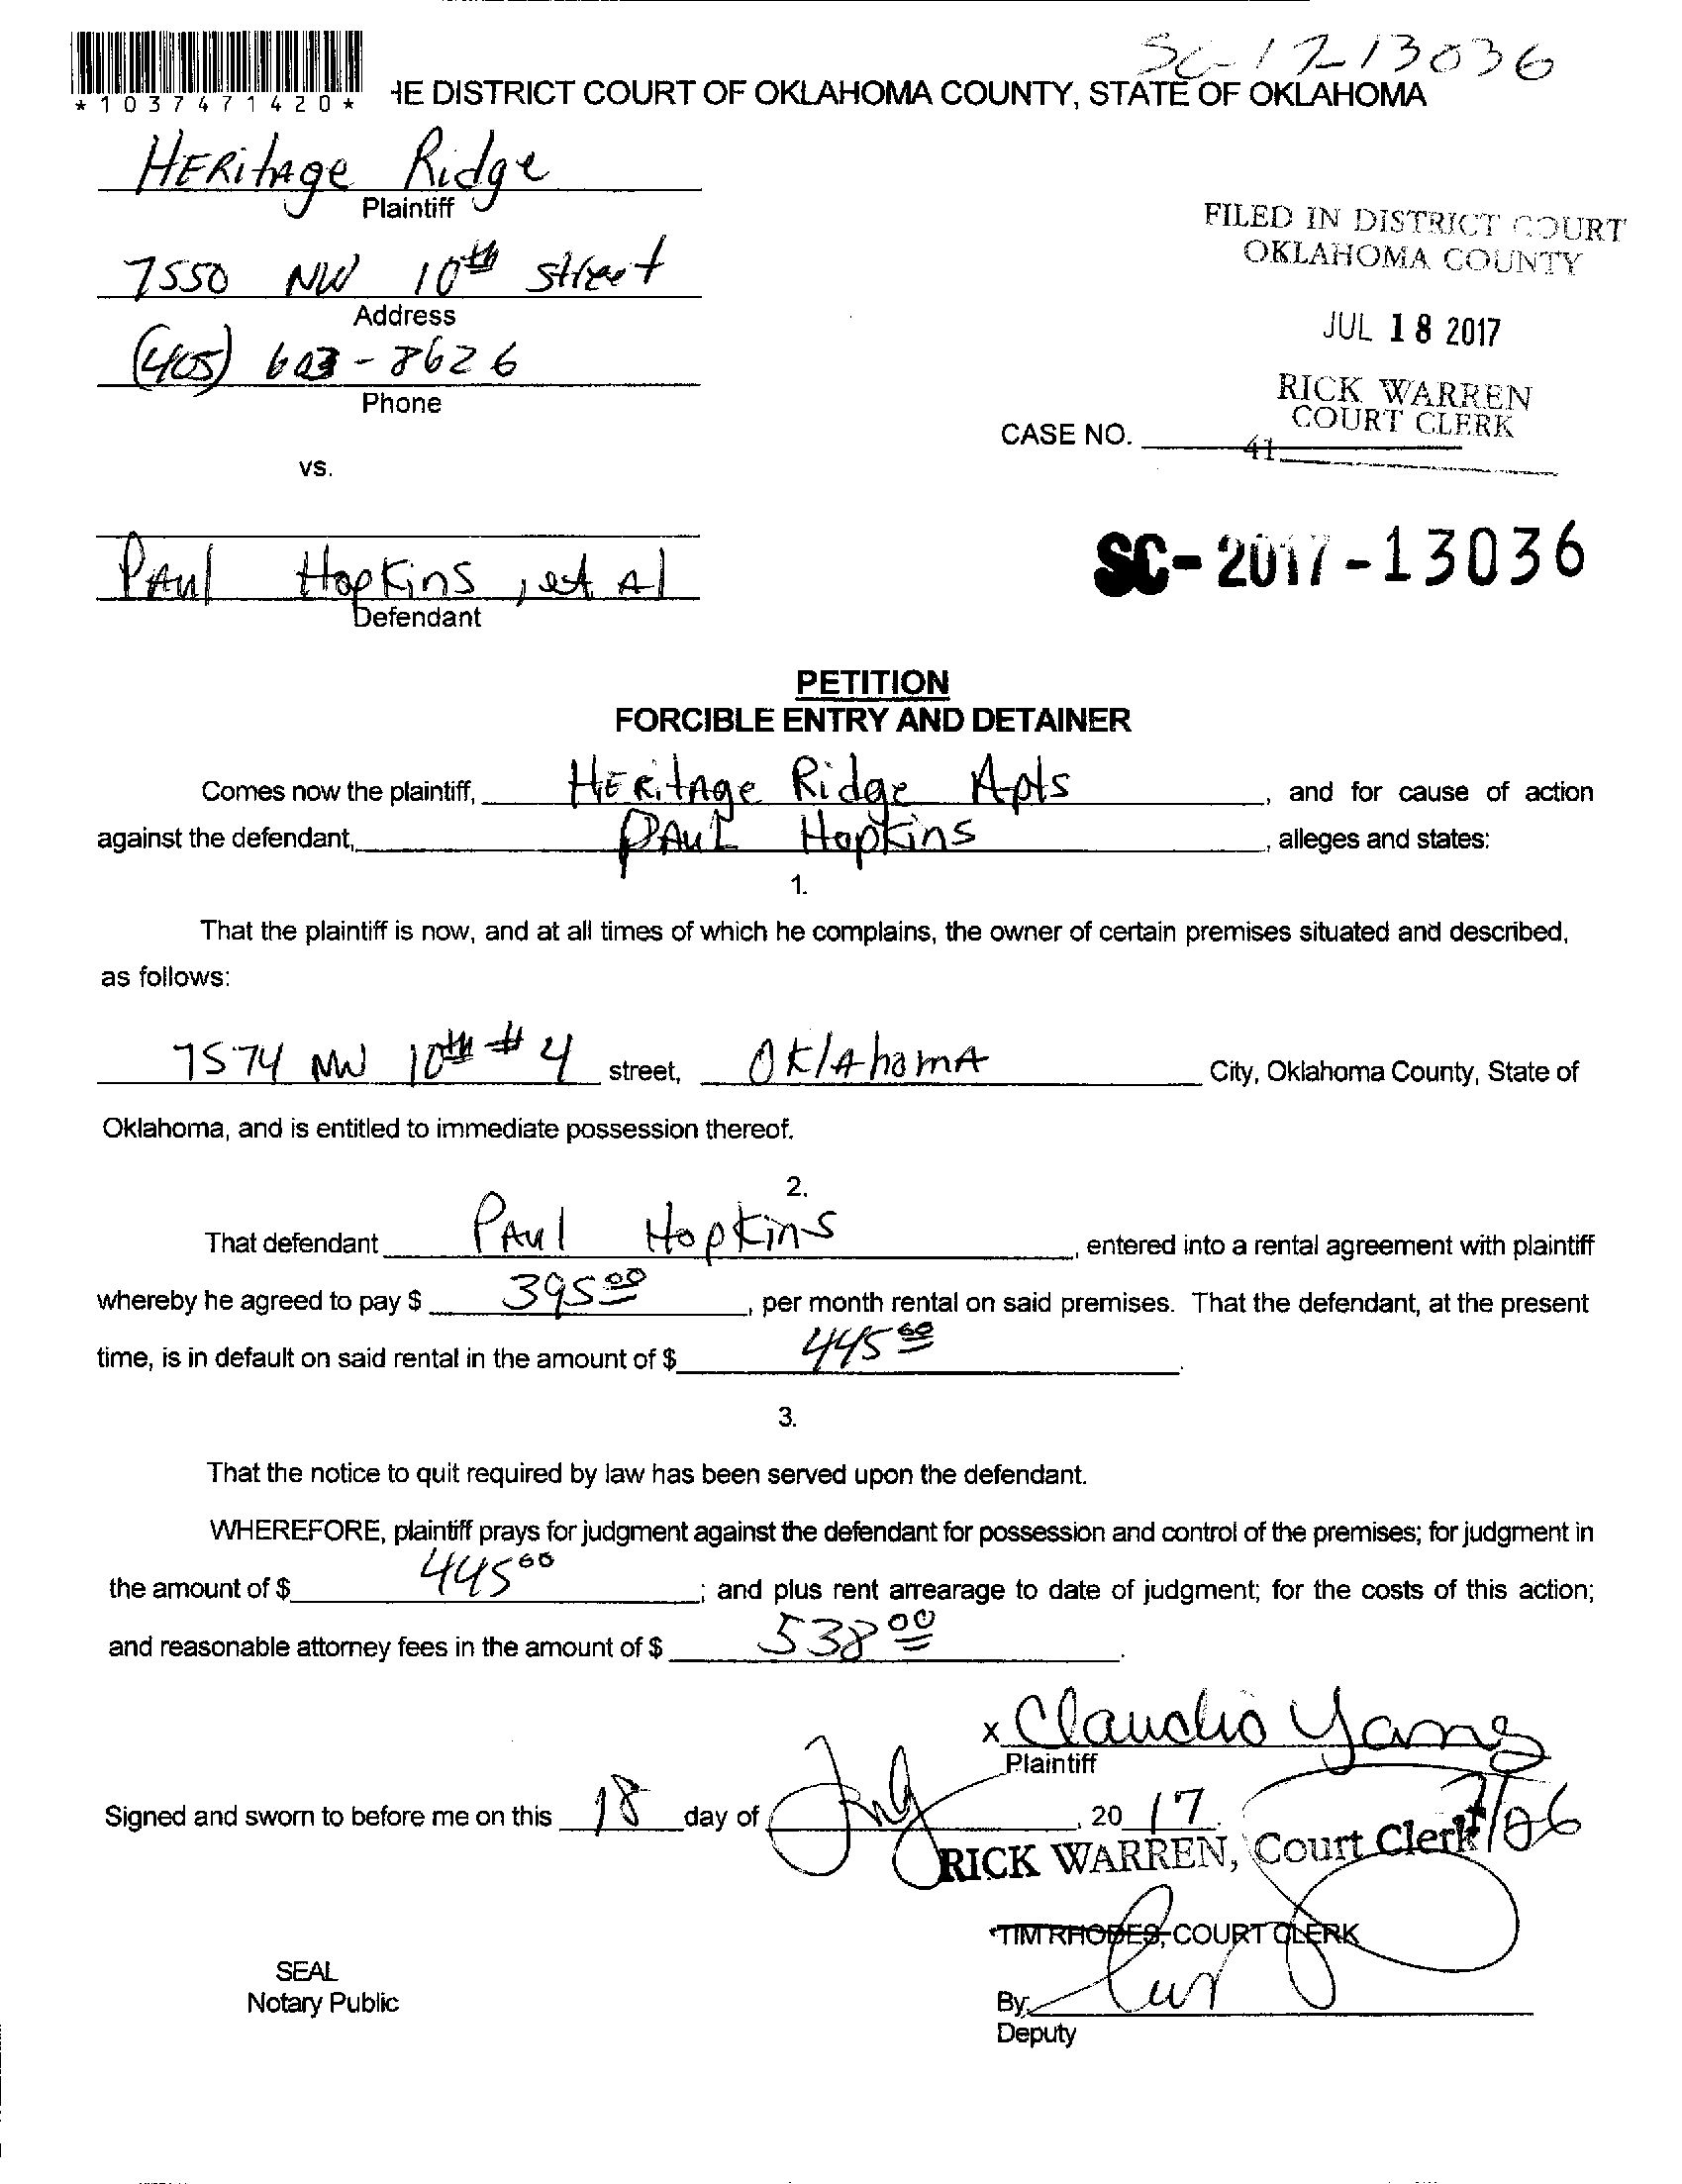 SC-17-13036
*1037471420*
HE DISTRICT COURT OF OKLAHOMA COUNTY, STATE OF OKLAHOMA
HERitAge Ridge
Plaintiff
7550 NW 10th street
Address
(405) 603-8626
Phone
vs.
PAul HopKins, et Al
Defendant
FILED IN DISTRICT COURT
OKLAHOMA COUNTY
JUL 18 2017
RICK WARREN
COURT CLERK
CASE NO.
41
SC-2017-13036
PETITION
FORCIBLE ENTRY AND DETAINER
Comes now the plaintiff, HERitAge Ridge Apts, and for cause of action
against the defendant, PAUL HopKins, alleges and states:
1.
That the plaintiff is now, and at all times of which he complains, the owner of certain premises situated and described,
as follows:
7574 NW 10th #4 street, OklAhomA City, Oklahoma County, State of
Oklahoma, and is entitled to immediate possession thereof.
2.
That defendant PAul HopKins, entered into a rental agreement with plaintiff
whereby he agreed to pay $ 395 00, per month rental on said premises. That the defendant, at the present
time, is in default on said rental in the amount of $ 445 00.
3.
That the notice to quit required by law has been served upon the defendant.
WHEREFORE, plaintiff prays for judgment against the defendant for possession and control of the premises; for judgment in
the amount of $ 445 00; and plus rent arrearage to date of judgment; for the costs of this action;
and reasonable attorney fees in the amount of $ 538 00.
x Claudio
Plaintiff
Signed and sworn to before me on this 18 day of July, 20 17.
RICK WARREN, Court Clerk
TIM RHODES, COURT CLERK
SEAL
Notary Public
By
Deputy